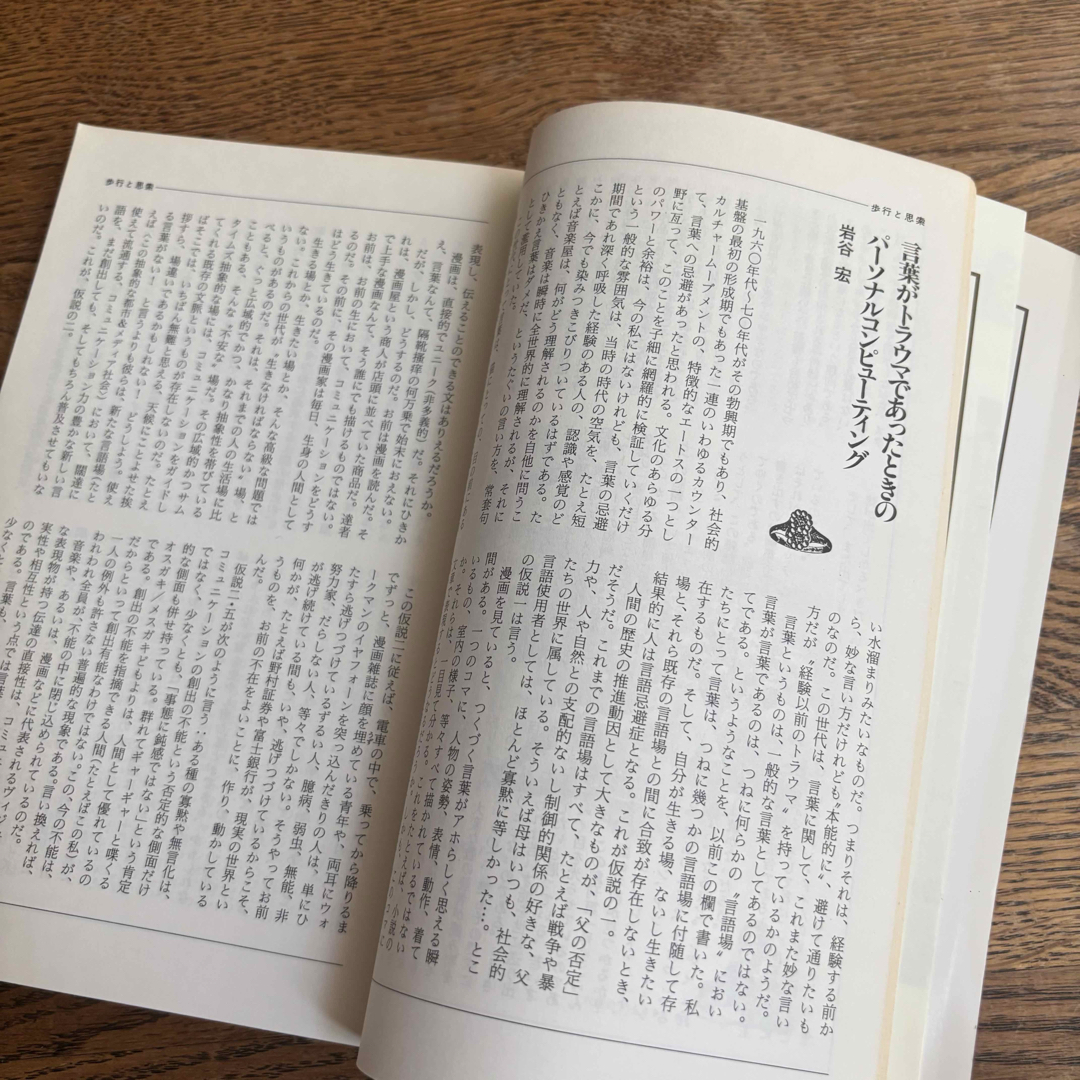 歩行と思索
言葉がトラウマであったときの
パーソナルコンピューティング
岩谷 宏
一九六〇年代〜七〇年代がその勃興期でもあり、社会的
基盤の最初の形成期でもあった一連のいわゆるカウンター
カルチャームーブメントの、特徴的なエートスの一つとし
て、言葉への忌避があったと思われる。文化のあらゆる分
野に亙って、このことを子細に網羅的に検証していくだけ
のパワーと余裕は、今の私にはないけれども、言葉の忌避
という一般的な雰囲気は、当時の時代の空気を、たとえ短
期間であれ深く呼吸した経験のある人の、認識や感覚のど
こかに、今でも染みつきこびりついているはずである。た
とえば音楽屋は、何がどう理解されるのかを自他に問うこ
ともなく、音楽は瞬時に全世界的に理解されるが、それに
ひきかえ言葉はダメだ、というたぐいの言い方を、常套句
として愛用していた。
い水溜まりみたいなものだ。つまりそれは、経験する前か
ら、妙な言い方だけれども〝本能的に〟、避けて通りたいも
のなのだ。この世代は、言葉に関して、これまた妙な言い
方だが、経験以前のトラウマ〟を持っているかのようだ。
言葉というものは、一般的な言葉としてあるのではない。
言葉が言葉であるのは、つねに何らかの〝言語場〟におい
てである。というようなことを、以前この欄で書いた。私
たちにとって言葉は、つねに幾つかの言語場に付随して存
在するものだ。そして、自分が生きる場、ないし生きたい
場と、それら既存の言語場との間に合致が存在しないとき、
結果的に人は言語忌避症となる。これが仮説の一。
人間の歴史の推進動因として大きなものが、「父の否定」
だそうだ。これまでの言語場はすべて、たとえば戦争や暴
力や、人や自然との支配的ないし制御的関係の好きな、父
たちの世界に属している。そういえば母はいつも、社会的
言語使用者としては、ほとんど寡黙に等しかった…。とこ
の仮説一は言う。
漫画を見ていると、つくづく言葉がアホらしく思える瞬
間がある。一つのコマに、人物の姿勢、表情、動作、着て
いるもの、室内の様子、等々すべて描かれているではない
か。それらは、一目見て分かる。
歩行と思索
表現し、伝えることのできる文はありえるだろうか。
漫画は、直接的でユニーク(非多義的)だ。それにひきか
え、言葉なんて、隔靴掻痒の何万乗で始末におえない。
だが、しかし、どうするのだ。お前は漫画を読んだ。そ
れは、漫画屋という商人が店頭に並べていた商品だ。達者
で上手な漫画なんて、そう誰にでも描けるものではない。
お前は、お前の生において、コミュニケーションをどうす
るのだ。その前に、その漫画家は毎日、生身の人間として
はどう生きているのだ。
生きる場とか、生きたい場とか、そんな高級な問題では
ない。これからの世代が、生きなければならない〝場〟と
いうものがあるのだ。それは、それまでの人の生活場に比
べると、ぐっと広域的でかつ、かなり抽象性を帯びている
こともある、そんな〝不安な〟場だ。その広域的かつサム
タイムズ抽象的な場には、コミュニケーションをガイドし
てくれる既存の文脈というものが存在しないのだ。たとえ
ばそこでは、いちばん無難と思える、天候にことよせた挨
拶すら、場違いであるかもしれない!どうしよう。使え
る言葉がない!と言うよりも彼らは、新たな言語場(たと
えば〈この抽象的な都市&メディア社会〉)において、闊達に
使えて流通する、コミュニケーション力の豊かな新しい言
語を、まだ創出しても、そしてもちろん普及させてもいな
いのだ。これが、仮説の二。
この仮説二に従えば、電車の中で、乗ってから降りるま
でずっと、漫画雑誌に顔を埋めている青年や、両耳にウォ
ークマンのイヤフォーンを突っ込んだきりの人は、単にひ
たすら逃げつづけているずるい人、臆病、弱虫、無能、非
努力家、だらしない人、等々でしかない。そうやってお前
が逃げ続けている間も、いや、逃げつづけているからこそ、
何かが、たとえば野村証券や富士銀行が、現実の世界とい
うものを、お前の不在をよいことに、作り、動かしている
んだ。
仮説二・五が次のように言う:ある種の寡黙や無言化は、
コミュニケーションの創出の不能という否定的な側面だけ
ではなく、少なくとも、「事態に鈍感ではない」という肯定
的な側面も併せ持っている。群れてギャーギャーと喋くる
オスガキ/メスガキどもよりは、人間として優れている。
だからといって創出の不能を指摘できる人間(たとえばこの私)が、
一人の例外も許さない普遍的な現象である。この今の不能は、
われわれ全員が、不能の中に閉じ込められている。言い換えれば、
音楽や、あるいは、漫画などに代表されるヴィジュ